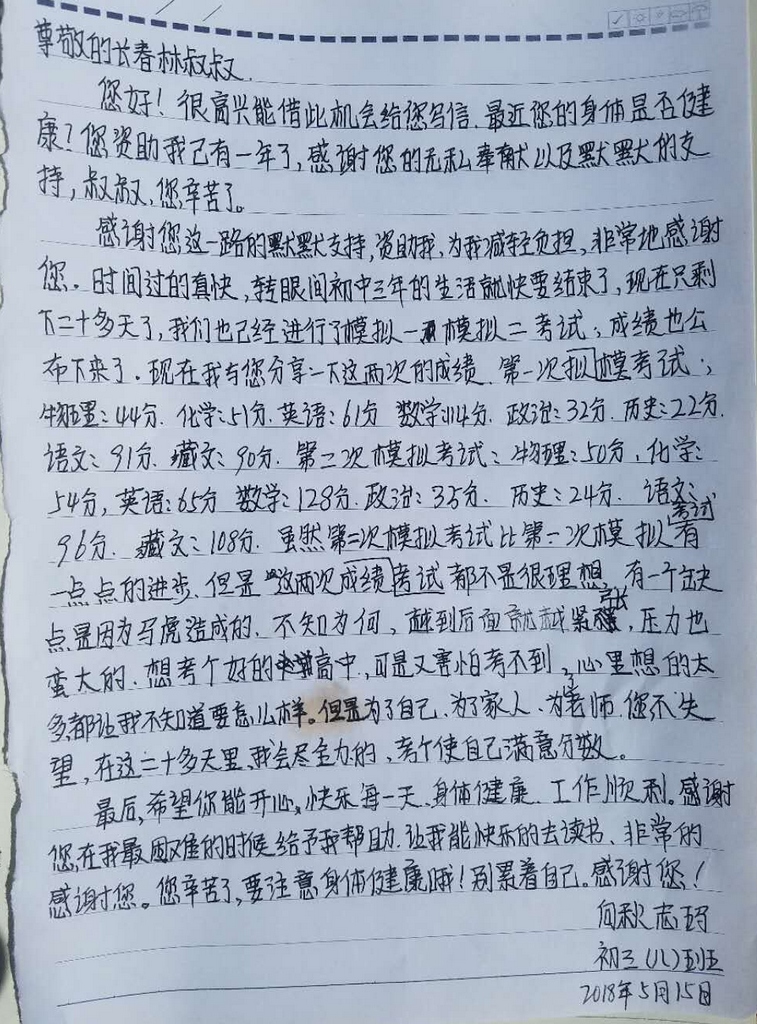 尊敬的长春林叔叔.
您好！很高兴能借此机会给您写信.最近您的身体是否健
康？您资助我已有一年了,感谢您的无私奉献以及默默的支
持,叔叔,您辛苦了。
感谢您这一路的默默支持,资助我,为我减轻负担,非常地感谢
您。时间过的真快,转眼间初中三年的生活就快要结束了,现在只剩
下二十多天了,我们也已经进行了模拟一和模拟二考试;成绩也公
布下来了.现在我与您分享一下这两次的成绩.第一次拟模考试:
物理:44分.化学:51分.英语:61分 数学114分.政治:32分.历史:22分.
语文:91分.藏文:90分.第二次模拟考试:物理:50分,化学:
54分,英语:65分 数学:128分.政治:35分.历史:24分.语文:
96分.藏文:108分.虽然第二次模拟考试比第一次模拟考试有
一点点的进步.但是这两次成绩考试都不是很理想,有一个缺
点是因为马虎造成的.不知为何,越到后面就越紧张,压力也
蛮大的.想考个好的高中,可是又害怕考不到,心里想的太
多都让我不知道要怎么样。但是为了自己.为了家人.为了老师.您不失
望,在这二十多天里.我会尽全力的,考个使自己满意分数。
最后,希望你能开心,快乐每一天.身体健康.工作顺利。感谢
您,在我最困难的时候给予我帮助.让我能快乐的去读书、非常的
感谢您。您辛苦了,要注意身体健康哦！别累着自己。感谢您！
向秋志玛
初三(八)班
2018年5月15日